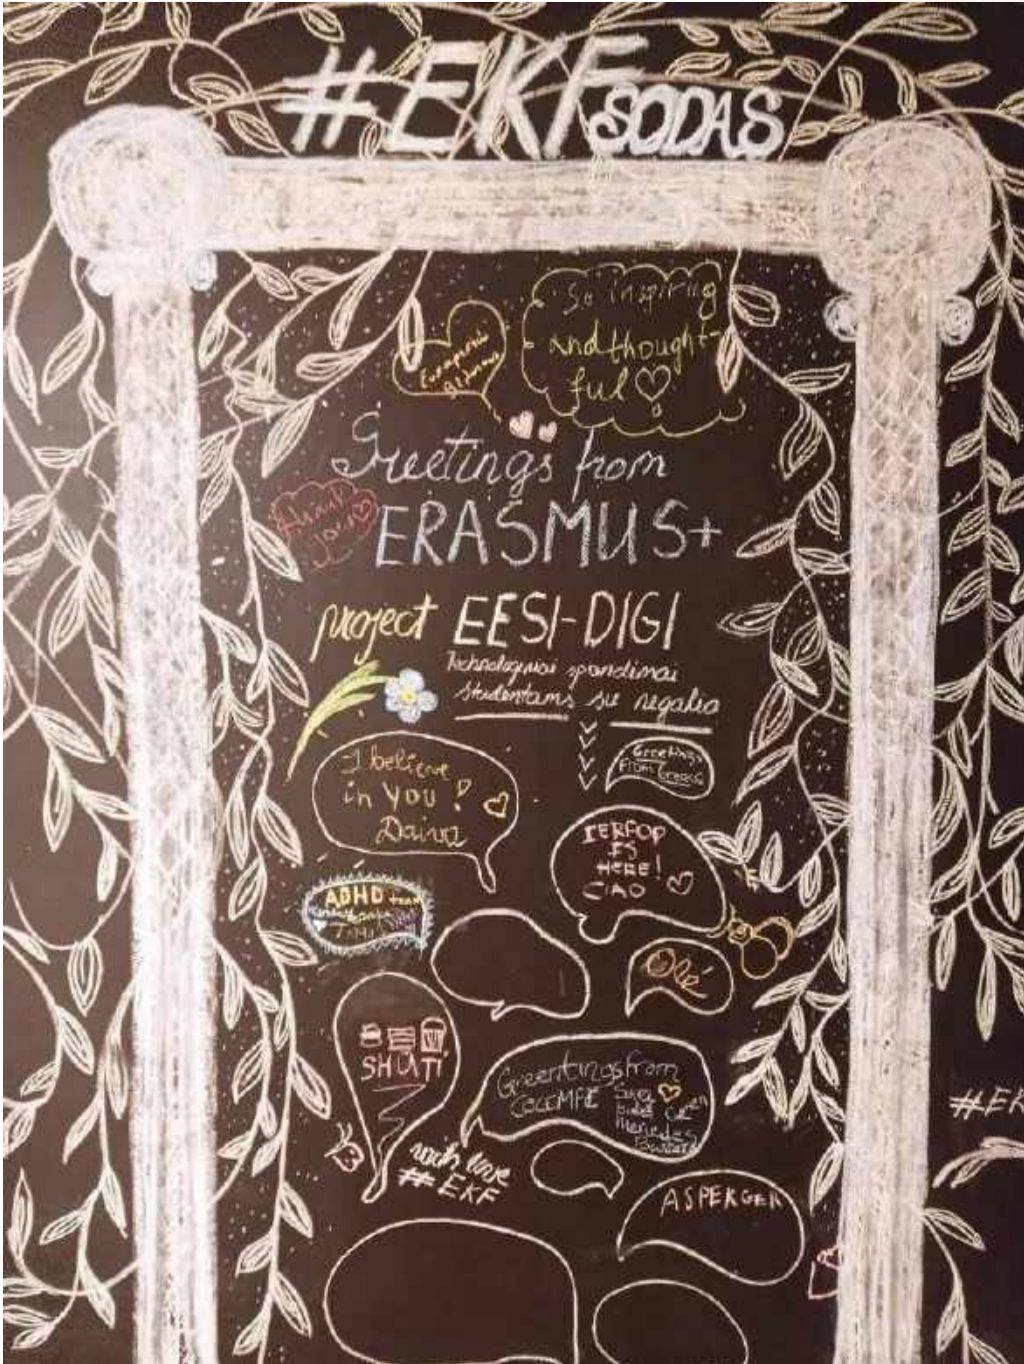 #EKFSODAS
So inspiring
and thought-
ful
Greetings from
ERASMUS+
project EESI-DIGI
Technologiniai sprendimai
studentams su negalia
I believe
in you!
Daiva
Greetings
From Greece
IERFOP
IS
HERE!
CIAO
ADHD team
Olé
SHUTI
Greentings from
COCEMFE
with love
#EKF
ASPERGER
#EK